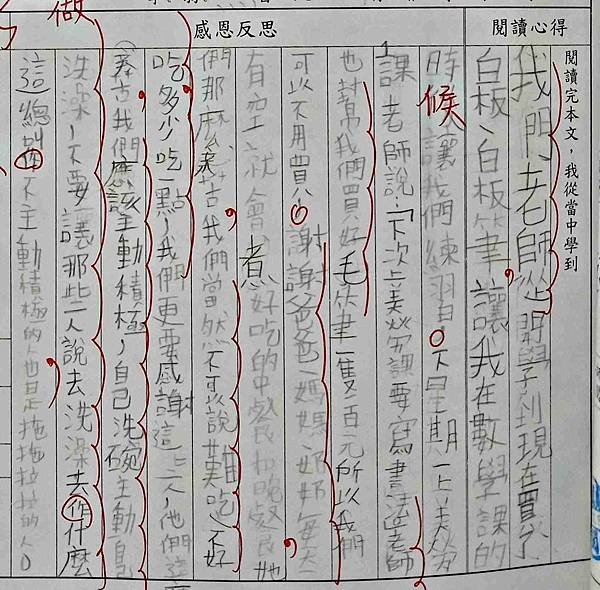 做
感恩反思
閱讀心得
閱讀完本文，我從當中學到
我門老師從開學到現在買了
白板、白板筆，讓我在數學課的
時候讓我們練習。下星期一上美勞
課，老師說：「下次上美勞課要寫書法老師
也幫我們買好毛筆一隻百元所以我們
可以不用買。謝謝爸爸、媽媽、奶奶，每天
有空就會煮好吃的中餐和晚餐，她
們那麼辛苦，我們當然不可以說難吃、不好
吃多少吃一點，我們更要感謝這些人，他們這麼
辛苦我們應該主動積極，自己洗碗主動自己
洗澡，不要讓那些人說去洗澡去作什麼
這總叫作不主動積極的人也是拖拖拉拉的人。